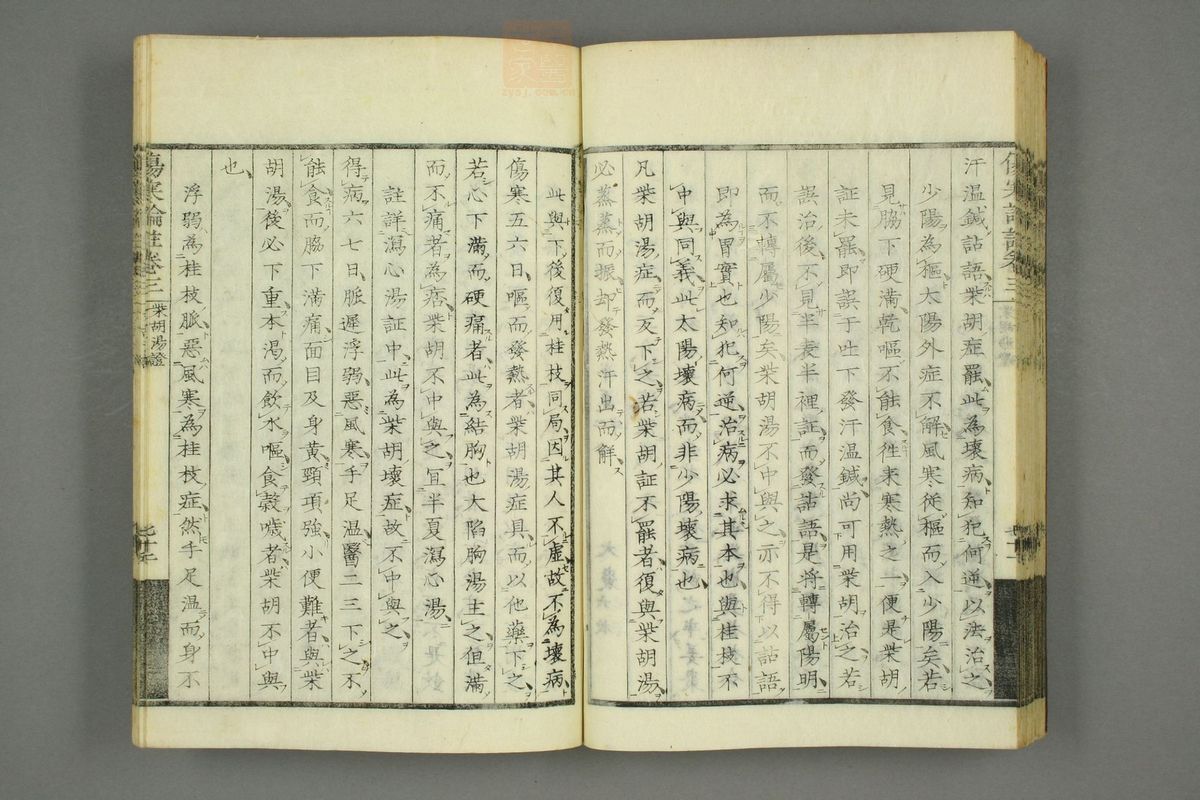 汗温鍼詀語柴胡症罷此為壞病知犯何逆以法治之
少陽為樞太陽外症不解風寒従樞而入少陽矣若
見脇下硬満乾嘔不能食徃来寒熱之一便是柴胡
証未罷即誤于吐下發汗温鍼尚可用柴胡治之若
誤治後不見半表半裡証而發詀語是将轉屬陽明
而不轉屬少陽矣柴胡湯不中與之亦不得以詀語
即為胃實也知犯何逆治病必求其本也與桂枝不
中與同義此太陽壞病而非少陽壞病也
凡柴胡湯症而反下之若柴胡証不罷者復與柴胡湯
必蒸蒸而振却發熱汗出而解
此與下後復用桂技同局因其人不虚故不為壞病
傷寒五六日嘔而發熱者柴胡湯症具而以他藥下之
若心下滿而硬痛者此為結胸也大陥胸湯主之但滿
而不痛者為痞柴胡不中與之宜半夏瀉心湯
註詳瀉心湯証中此為柴胡壞症故不中與之
得病六七日脈遲浮弱惡風寒手足温醫二三下之不
能食而脇下滿痛面目及身黃頸項強小便難者與柴
胡湯後必下重本渴而飲水嘔食穀噦者柴胡不中與
也
浮弱為桂枝脈惡風寒為桂枝症然手足温而身不
傷寒論註卷三
柴胡湯證